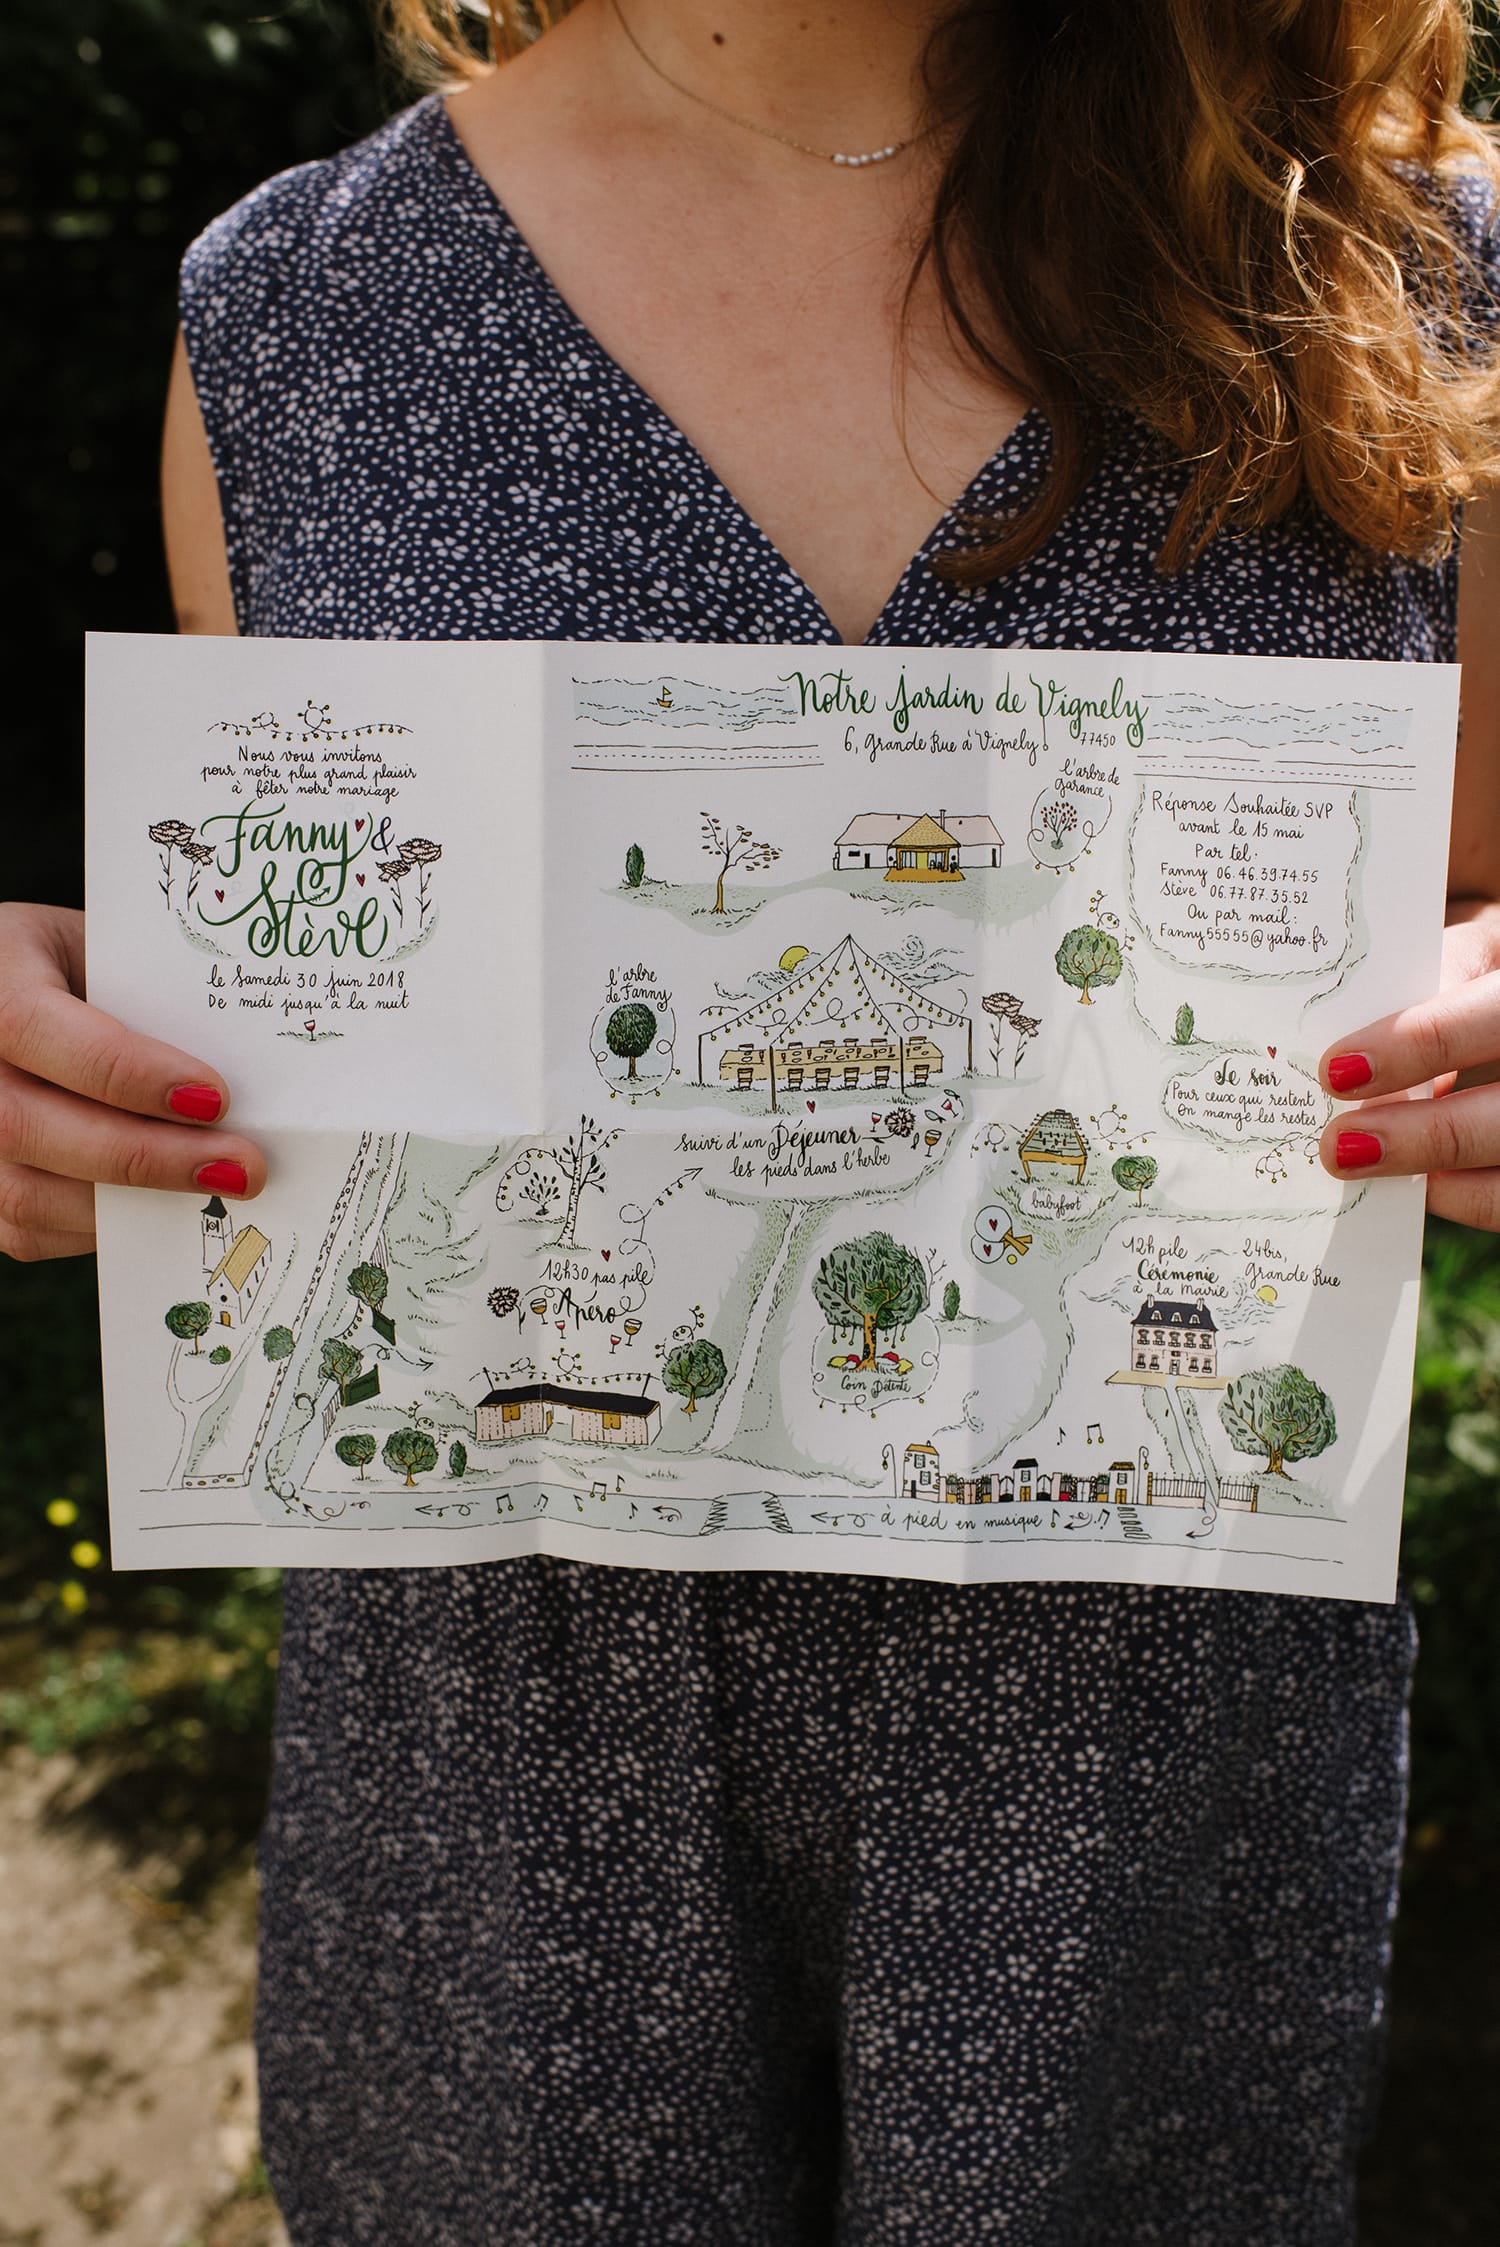 Nous vous invitons
pour notre plus grand plaisir
à fêter notre mariage
Fanny &
Stève
le Samedi 30 juin 2018
De midi jusqu'à la nuit
Notre Jardin de Vignely
6, Grande Rue à Vignely
77450
l'arbre de
garance
Réponse Souhaitée SVP
avant le 15 mai
Par tel:
Fanny 06.46.39.74.55
Stève 06.77.87.35.52
Ou par mail:
Fanny55555@yahoo.fr
l'arbre
de Fanny
Le soir
Pour ceux qui restent
on mange les restes
suivi d'un Déjeuner
les pieds dans l'herbe
babyfoot
12h30 pas pile
Apéro
Coin Détente
12h pile
Cérémonie
à la Mairie
24bis,
Grande Rue
à pied en musique